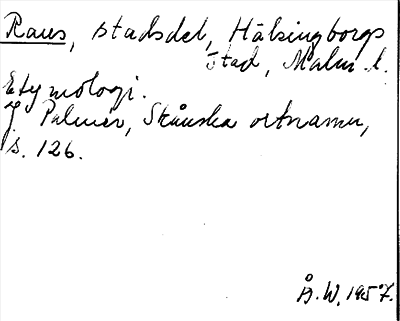 Raus, stadsdel, Hälsingborgs
stad, Malm. l.
Etymologi.
J Palmér, Skånska ortnamn,
s. 126.
Å.W. 1957.